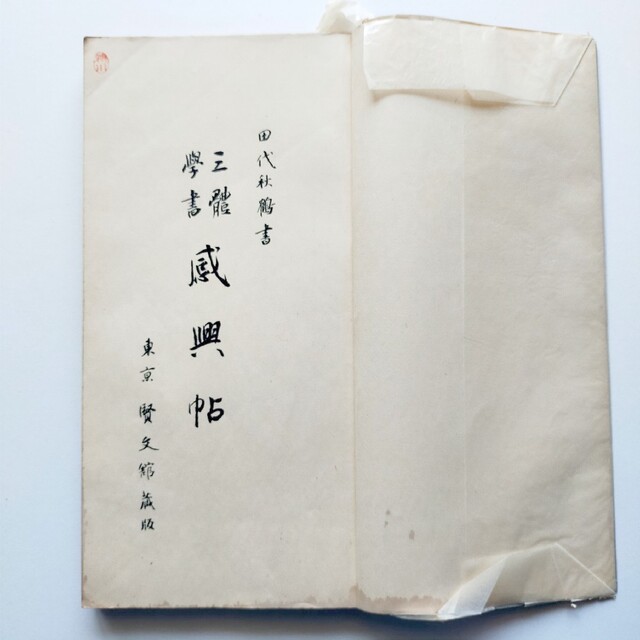 田代秋鶴書
三體
學書
感興帖
東京 賢文館藏版